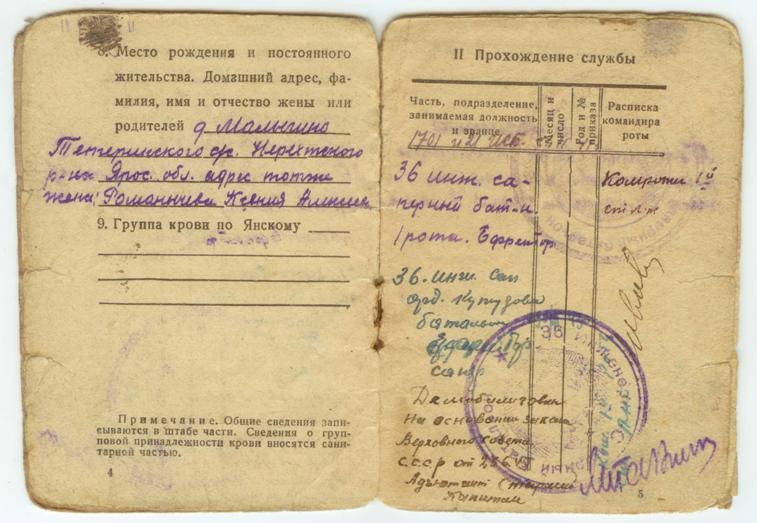 8. Место рождения и постоянного
жительства. Домашний адрес, фа-
милия, имя и отчество жены или
родителей д Малыгино
Тетеринского с/с. Нерехтского
р-на Яроc. обл. адрес тотже
жена: Романичева Ксения
9. Группа крови по Янскому
Примечание. Общие сведения запи-
сываются в штабе части. Сведения о груп-
повой принадлежности крови вносятся сани-
тарной частью.
4
II Прохождение службы
Часть, подразделение,
занимаемая должность
и звание
Месяц и
число
Род и №
приказа
Расписка
командира
роты
36 инж. са-
перный бат-н.
1 рота. Ефрейтор
Комроты 1ой
ст л-т
36. инж. сап
орд. Кутузова
батальон
Ефрейтор.
сапер
Демобилизован
На основании закона
Верховного Совета
СССР от 23.6.45
Адъютант Старший
Капитан
36 Инженер
5